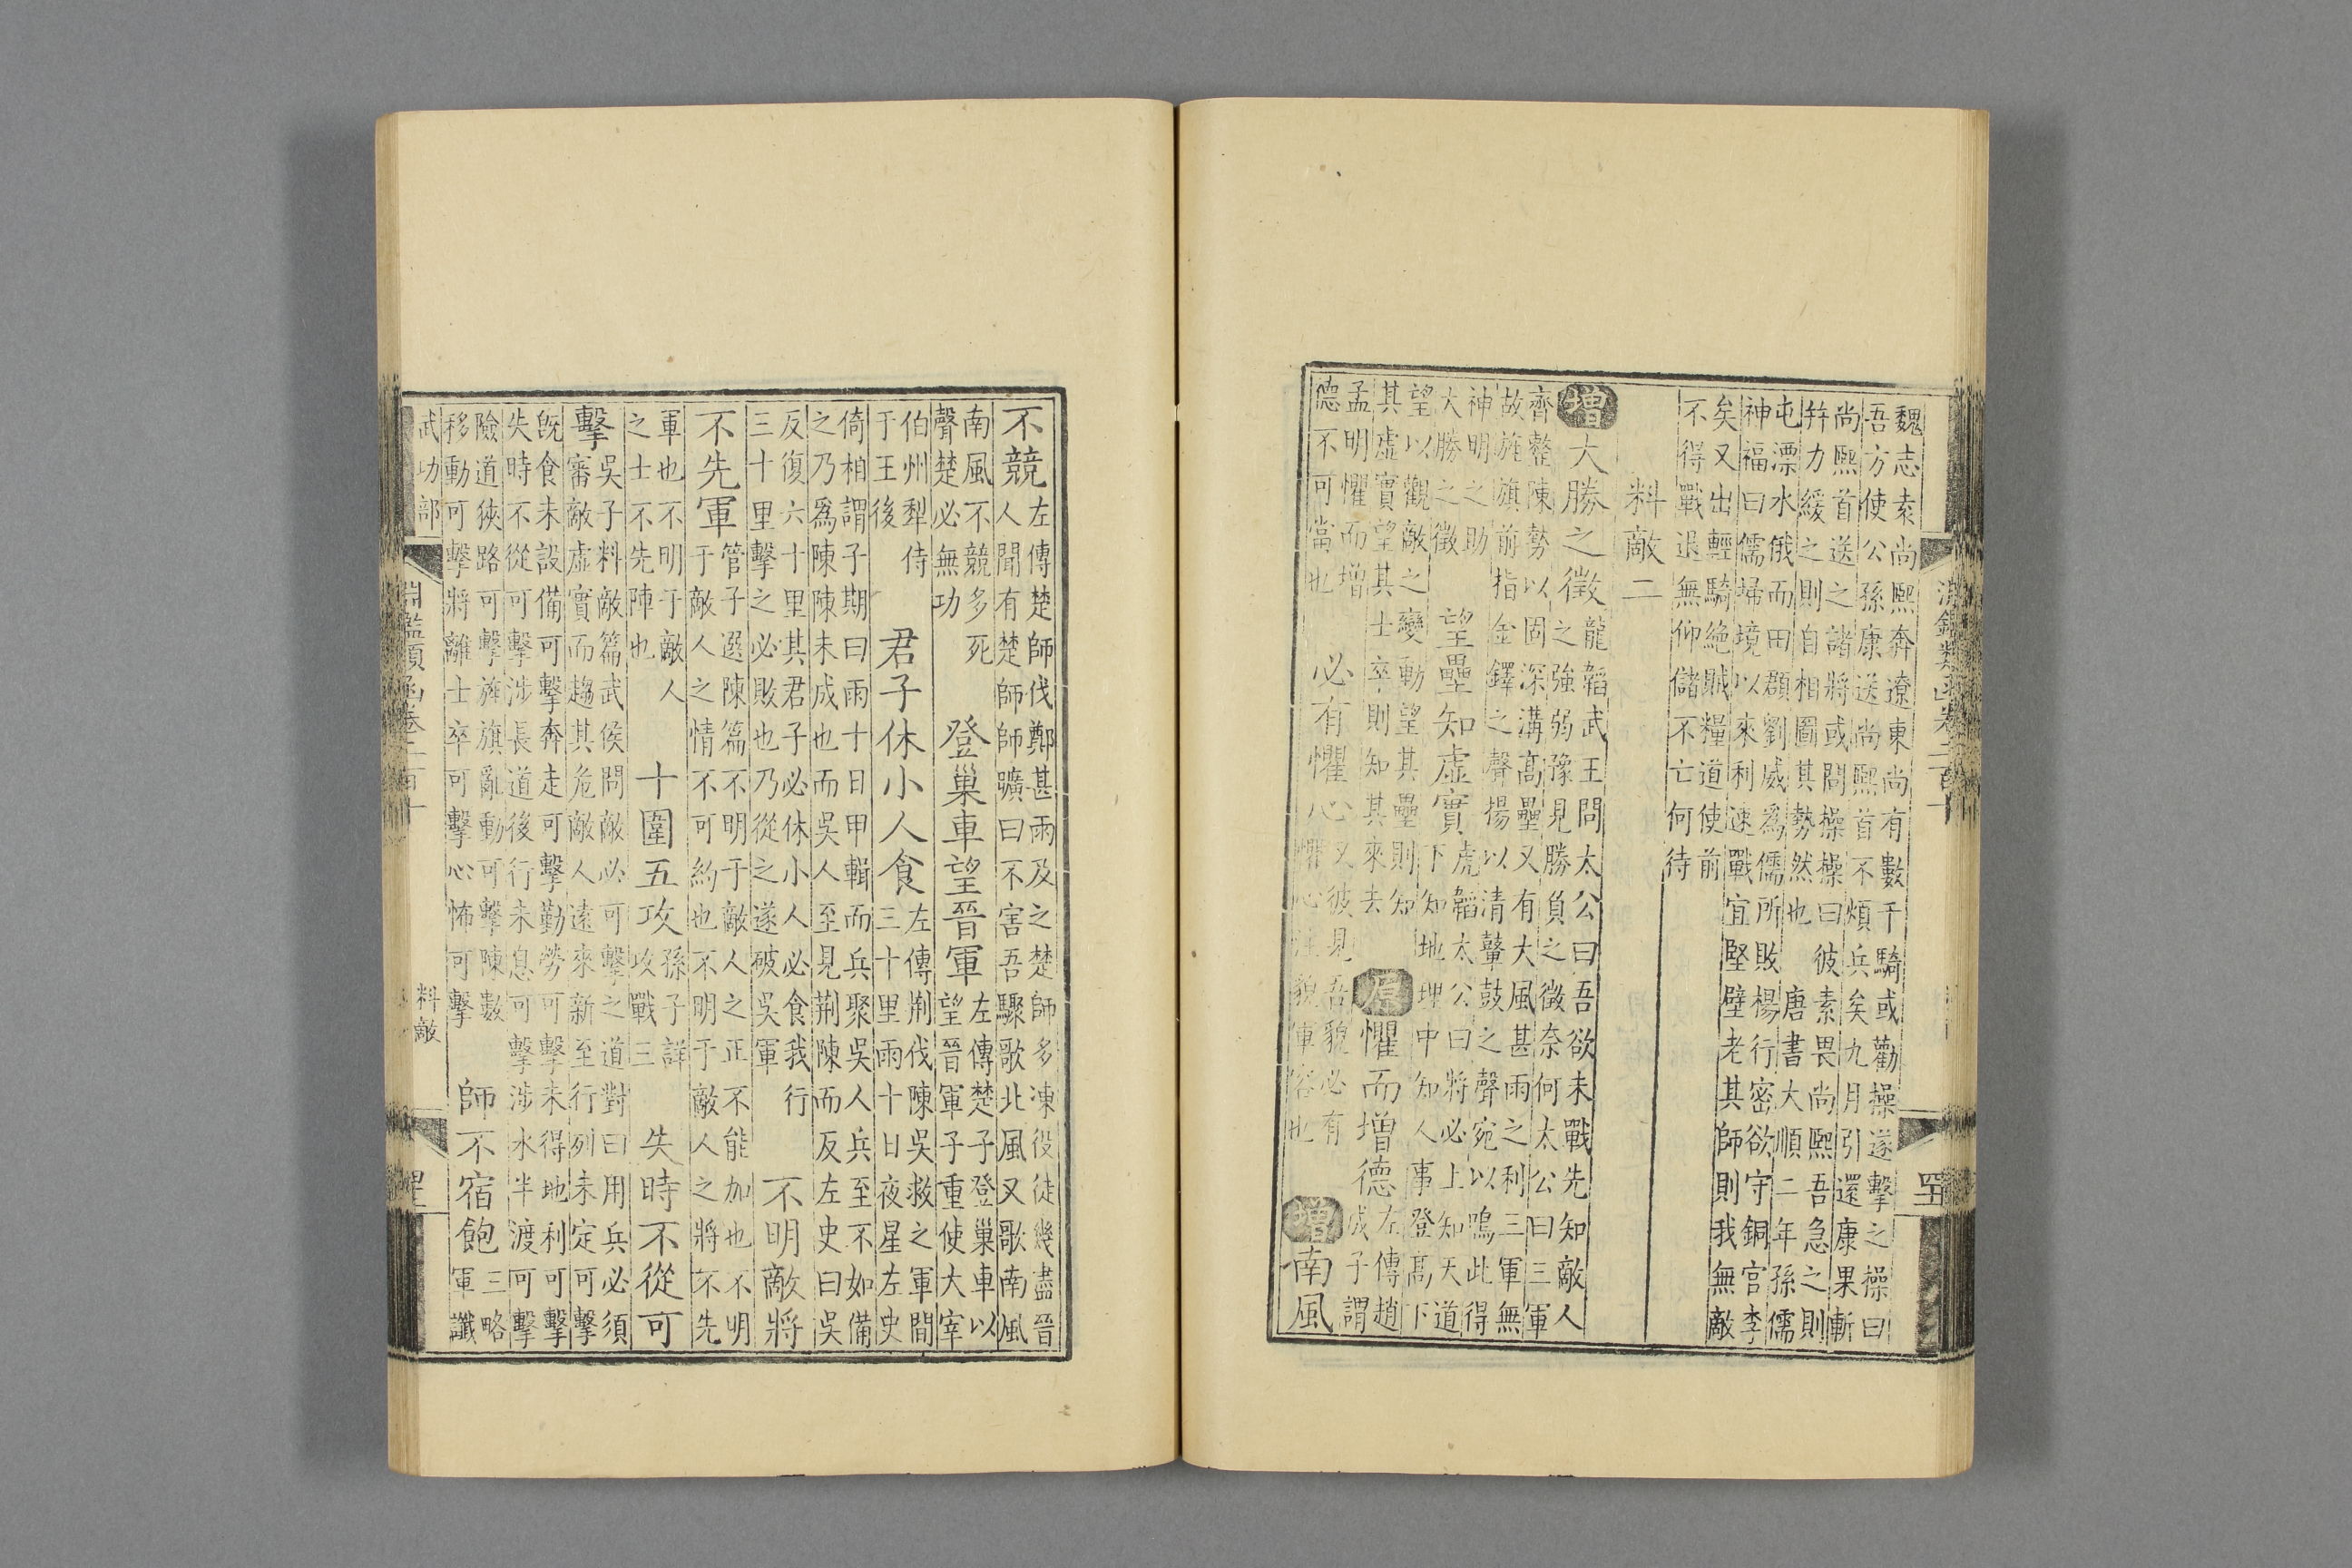 魏志袁尚熙奔遼東尚有數千騎或勸操遂擊之操曰
吾方使公孫康送尚熙首不煩兵矣九月引還康果斬
尚熙首送之諸將或問操操曰彼素畏尚熙吾急之則
幷力緩之則自相圖其勢然也　唐書大順二年孫儒
屯漂水俄而田頵劉威爲儒所敗楊行密欲守銅官李
神福曰儒埽境以來利速戰宜堅壁老其師則我無敵
矣又出輕騎絶賊糧道使前
不得戰退無仰儲不亡何待
料敵二
增大勝之徵
龍韜武王問太公曰吾欲未戰先知敵人
之強弱豫見勝負之徵奈何太公曰三軍
齊整陳勢以固深溝髙壘又有大風甚雨之利三軍無
故旌旗前指金鐸之聲揚以清鼙鼓之聲宛以鳴此得
神明之助
大勝之徵
望壘知虚實
虎韜太公曰將必上知天道
下知地理中知人事登髙下
望以觀敵之變動望其壘則知
其虚實望其士卒則知其來去
原懼而增德
左傳趙
成子謂
孟明懼而增
德不可當也
必有懼心
又彼見吾貌必有
懼心注貌軍容也
增南風
不競
左傳楚師伐鄭甚雨及之楚師多凍役徒幾盡晉
人聞有楚師師曠曰不害吾驟歌北風又歌南風
南風不競多死
聲楚必無功
登巢車望晉軍
左傳楚子登巢車以
望晉軍子重使大宰
伯州犁侍
于王後
君子休小人食
左傳荆伐陳吳救之軍間
三十里雨十日夜星左史
倚相謂子期曰雨十日甲輯而兵聚吳人兵至不如備
之乃爲陳陳未成也而吳人至見荆陳而反左史曰吳
反復六十里其君子必休小人必食我行
三十里擊之必敗也乃從之遂破吳軍
不明敵將
不先軍
管子選陳篇不明于敵人之正不能加也不明
于敵人之情不可約也不明于敵人之將不先
軍也不明于敵人
之士不先陣也
十圍五攻
孫子詳
攻戰三
失時不從可
擊
吳子料敵篇武侯問敵必可擊之道對曰用兵必須
審敵虛實而趨其危敵人遠來新至行列未定可擊
旣食未設備可擊奔走可擊勤勞可擊未得地利可擊
失時不從可擊涉長道後行未息可擊涉水半渡可擊
險道狹路可擊旌旗亂動可擊陳數
移動可擊將離士卒可擊心怖可擊
師不宿飽
三略
軍讖
武功部
淵鑑類函卷二百十
料敵